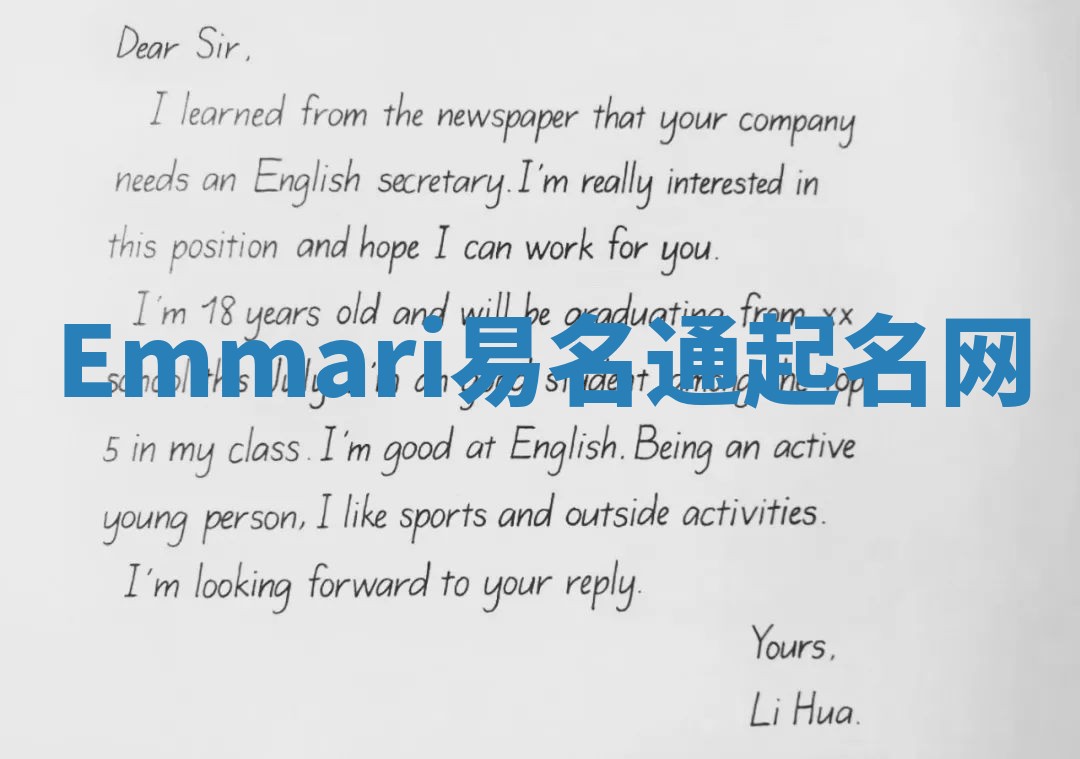 Dear Sir,
I learned from the newspaper that your company
needs an English secretary. I'm really interested in
this position and hope I can work for you.
I'm 18 years old and will be graduating from xx
Emmari易名通起名网
school this July. I'm an good student among the top
5 in my class. I'm good at English. Being an active
young person, I like sports and outside activities.
I'm looking forward to your reply.
Yours,
Li Hua.